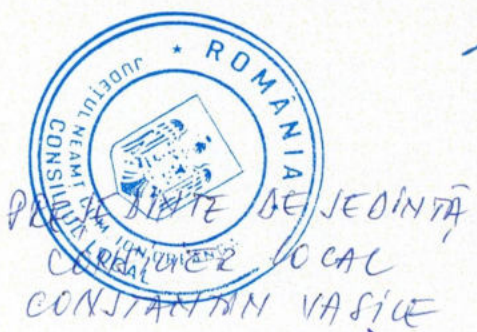 * ROMÂNIA
JUDEȚUL NEAMȚ
CONSILIUL LOCAL
PREȘEDINTE DE ȘEDINȚĂ
CONSILIER LOCAL
CONSTANTIN VASILE